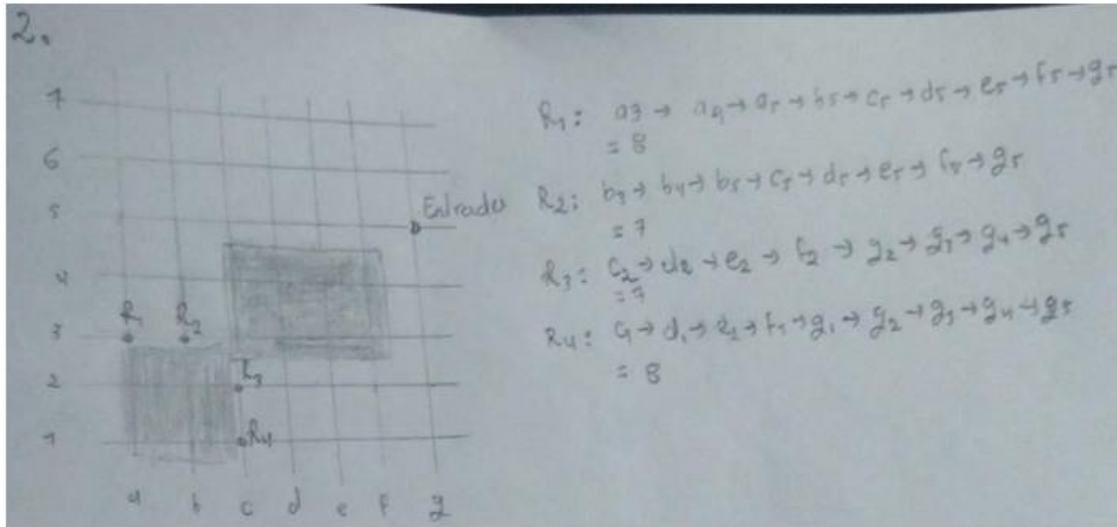 2.
7
6
5
Entrada
4
R1 R2
3
2
R3
1
R4
a b c d e f g
R1: a3 → a4 → a5 → b5 → c5 → d5 → e5 → f5 → g5
= 8
R2: b3 → b4 → b5 → c5 → d5 → e5 → f5 → g5
= 7
R3: c2 → d2 → e2 → f2 → g2 → g3 → g4 → g5
= 7
R4: c1 → d1 → e1 → f1 → g1 → g2 → g3 → g4 → g5
= 8